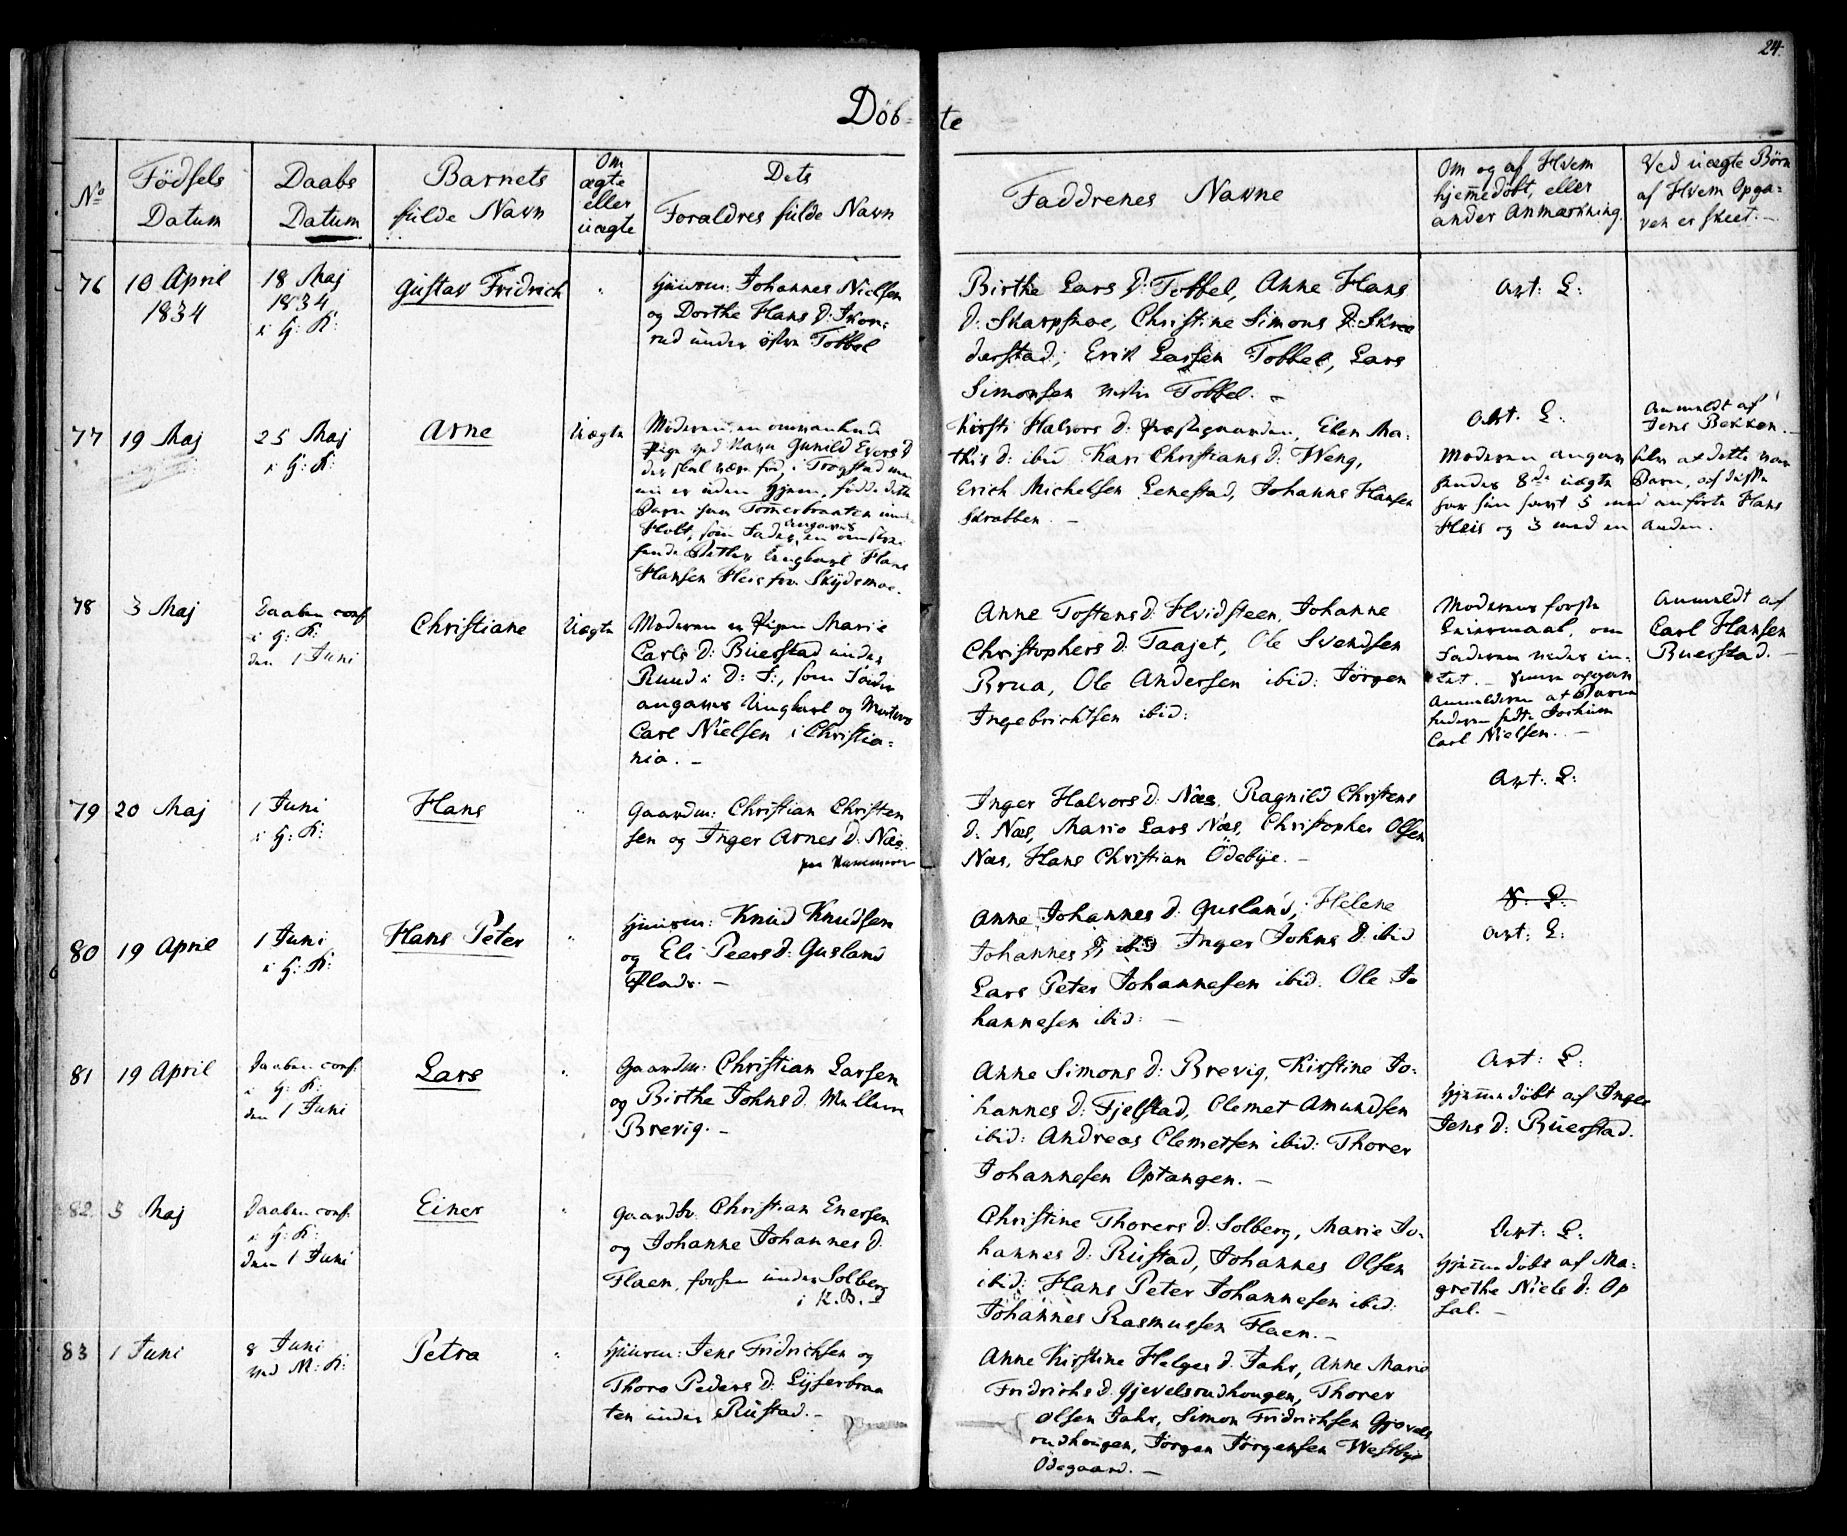 24.
Døb-te
No
Fødsels
Datum
Daabs
Datum
Barnets
fulde Navn
Om
ægte
eller
uægte
Dets
Forældres fulde Navn
Faddrenes Navne
Om og af Hvem
hjemedøbt, eller
ander Anmærkning.
Ved uægte Børn
af Hvem Opga-
ven er skeet.-
76
10 April
1834
18 Maj
1834
i H: K:
Gustav Fridrich
Huusm: Johannes Nielsen
og Dorthe Hans D:
rud under østre Toffel
Birthe Lars D: Toffel, Anne Hans
D: Skarpsnoe, Christine Simons D: Skree
derstad, Erik Larsen Toffel, Lars
Simonsen Toffel. -
Att: L:
77
19 Maj
25 Maj
i H: K:
Arne
Uægte
Moderen en
Pige ved Navn Gunild Evers D
der skal være fød i Trøgstad men
nu er uden Hjem, fødde dette
Barn paa Tomerbraaten under
Holt, som Fader angaves en
Ungkarl Hans
Hansen Heis fra Skydsmoe.
Kirsti Halvors D: Præstegaarden, Elen Ma-
this D: ibid Kari Christians D: Weng,
Erich Michelsen Lenestad, Johannes Hansen
Skrabben. -
Att: L:
Moderen angav selv at dette var
hendes 8de uægte Barn, af disse
har hun havt 5 med anførte Hans
Heis og 3 med en anden.
Anmeldt af
Jens Bekken.
78
3 Maj
Daaben conf.
i H: K:
den 1 Juni
Christiane
Uægte
Moderen er Pigen Marie
Carls D: Buerstad under
Ruud i D: S:, som Fader
angaves Ungkarl og
Carl Nielsen i Christia-
nia. -
Anne Tostens D: Hvidsteen, Johanne
Christophers D: Taajet, Ole Svendsen
Brua, Ole Andersen ibid: Jørgen
Ingebrichtsen ibid:
Moderens første
Leiermaal, om
Faderen vides in-
tet. -
Anmelderen at Barne
faderen hedte Jochum
Carl Nielsen. -
Anmeldt af
Carl Hansen
Buerstad. -
79
20 Maj
1 Juni
i H: K:
Hans
Gaardm: Christian Christen
sen og Inger Arnes D: Næs
Inger Halvors D: Næs, Ragnild Christens
D: Næs, Marie Lars Næs, Christopher Olsen
Næs, Hans Christian Ödebye. -
Att: L:
80
19 April
1 Juni
i H: K:
Hans Peter
Huusm: Knud Knudsen
og Eli Peers D: Gusland
Plads. -
Anne Johannes D: Gusland, Helene
Johannes D: ibid Inger Johns D: ibid
Lars Peter Johannesen ibid: Ole Jo
hannesen ibid: -
Att: L:
81
19 April
Daaben conf.
i H: K:
den 1 Juni
Lars
Gaardm: Christian Larsen
og Birthe Johns D: Mellem
Brevig. -
Anne Simons D: Brevig, Kirstine Jo-
hannes D: Fjelstad, Clemet Amundsen
ibid: Andreas Clemetsen ibid: Thorer
Johannesen Optangen. -
Att: L:
Hjemmedøbt af Inger
Jens D: Buerstad.
82.
5 Maj
Daaben conf.
i H: K:
den 1 Juni
Einer
Gaardbr. Christian Enersen
og Johanne Johannes D:
Flaen, forhen under Solberg
i K. B. d
Christine Thorers D: Solberg, Marie Jo-
hannes D: Rustad, Johannes Olsen
ibid: Hans Peter Johannesen ibid:
Johannes Rasmussen Flaen. -
Att: L:
Hjemmedøbt af Ma-
grethe Niels D: Op
sal. -
83
1 Juni
8 Juni
ved M: K:
Petra
Huusm: Jens Fridrichsen og
Thore Peders D: Lyserbraa
ten under Rustad. -
Anne Kirstine Helges D: Jahr, Anne Marie
Fridrichs D: Gjevelsrudhougen, Thorer
Olsen Jahr, Simon Fridrichsen Gjevels
rudhougen, Jørgen Jørgensen Westbye
Ødegaard. -